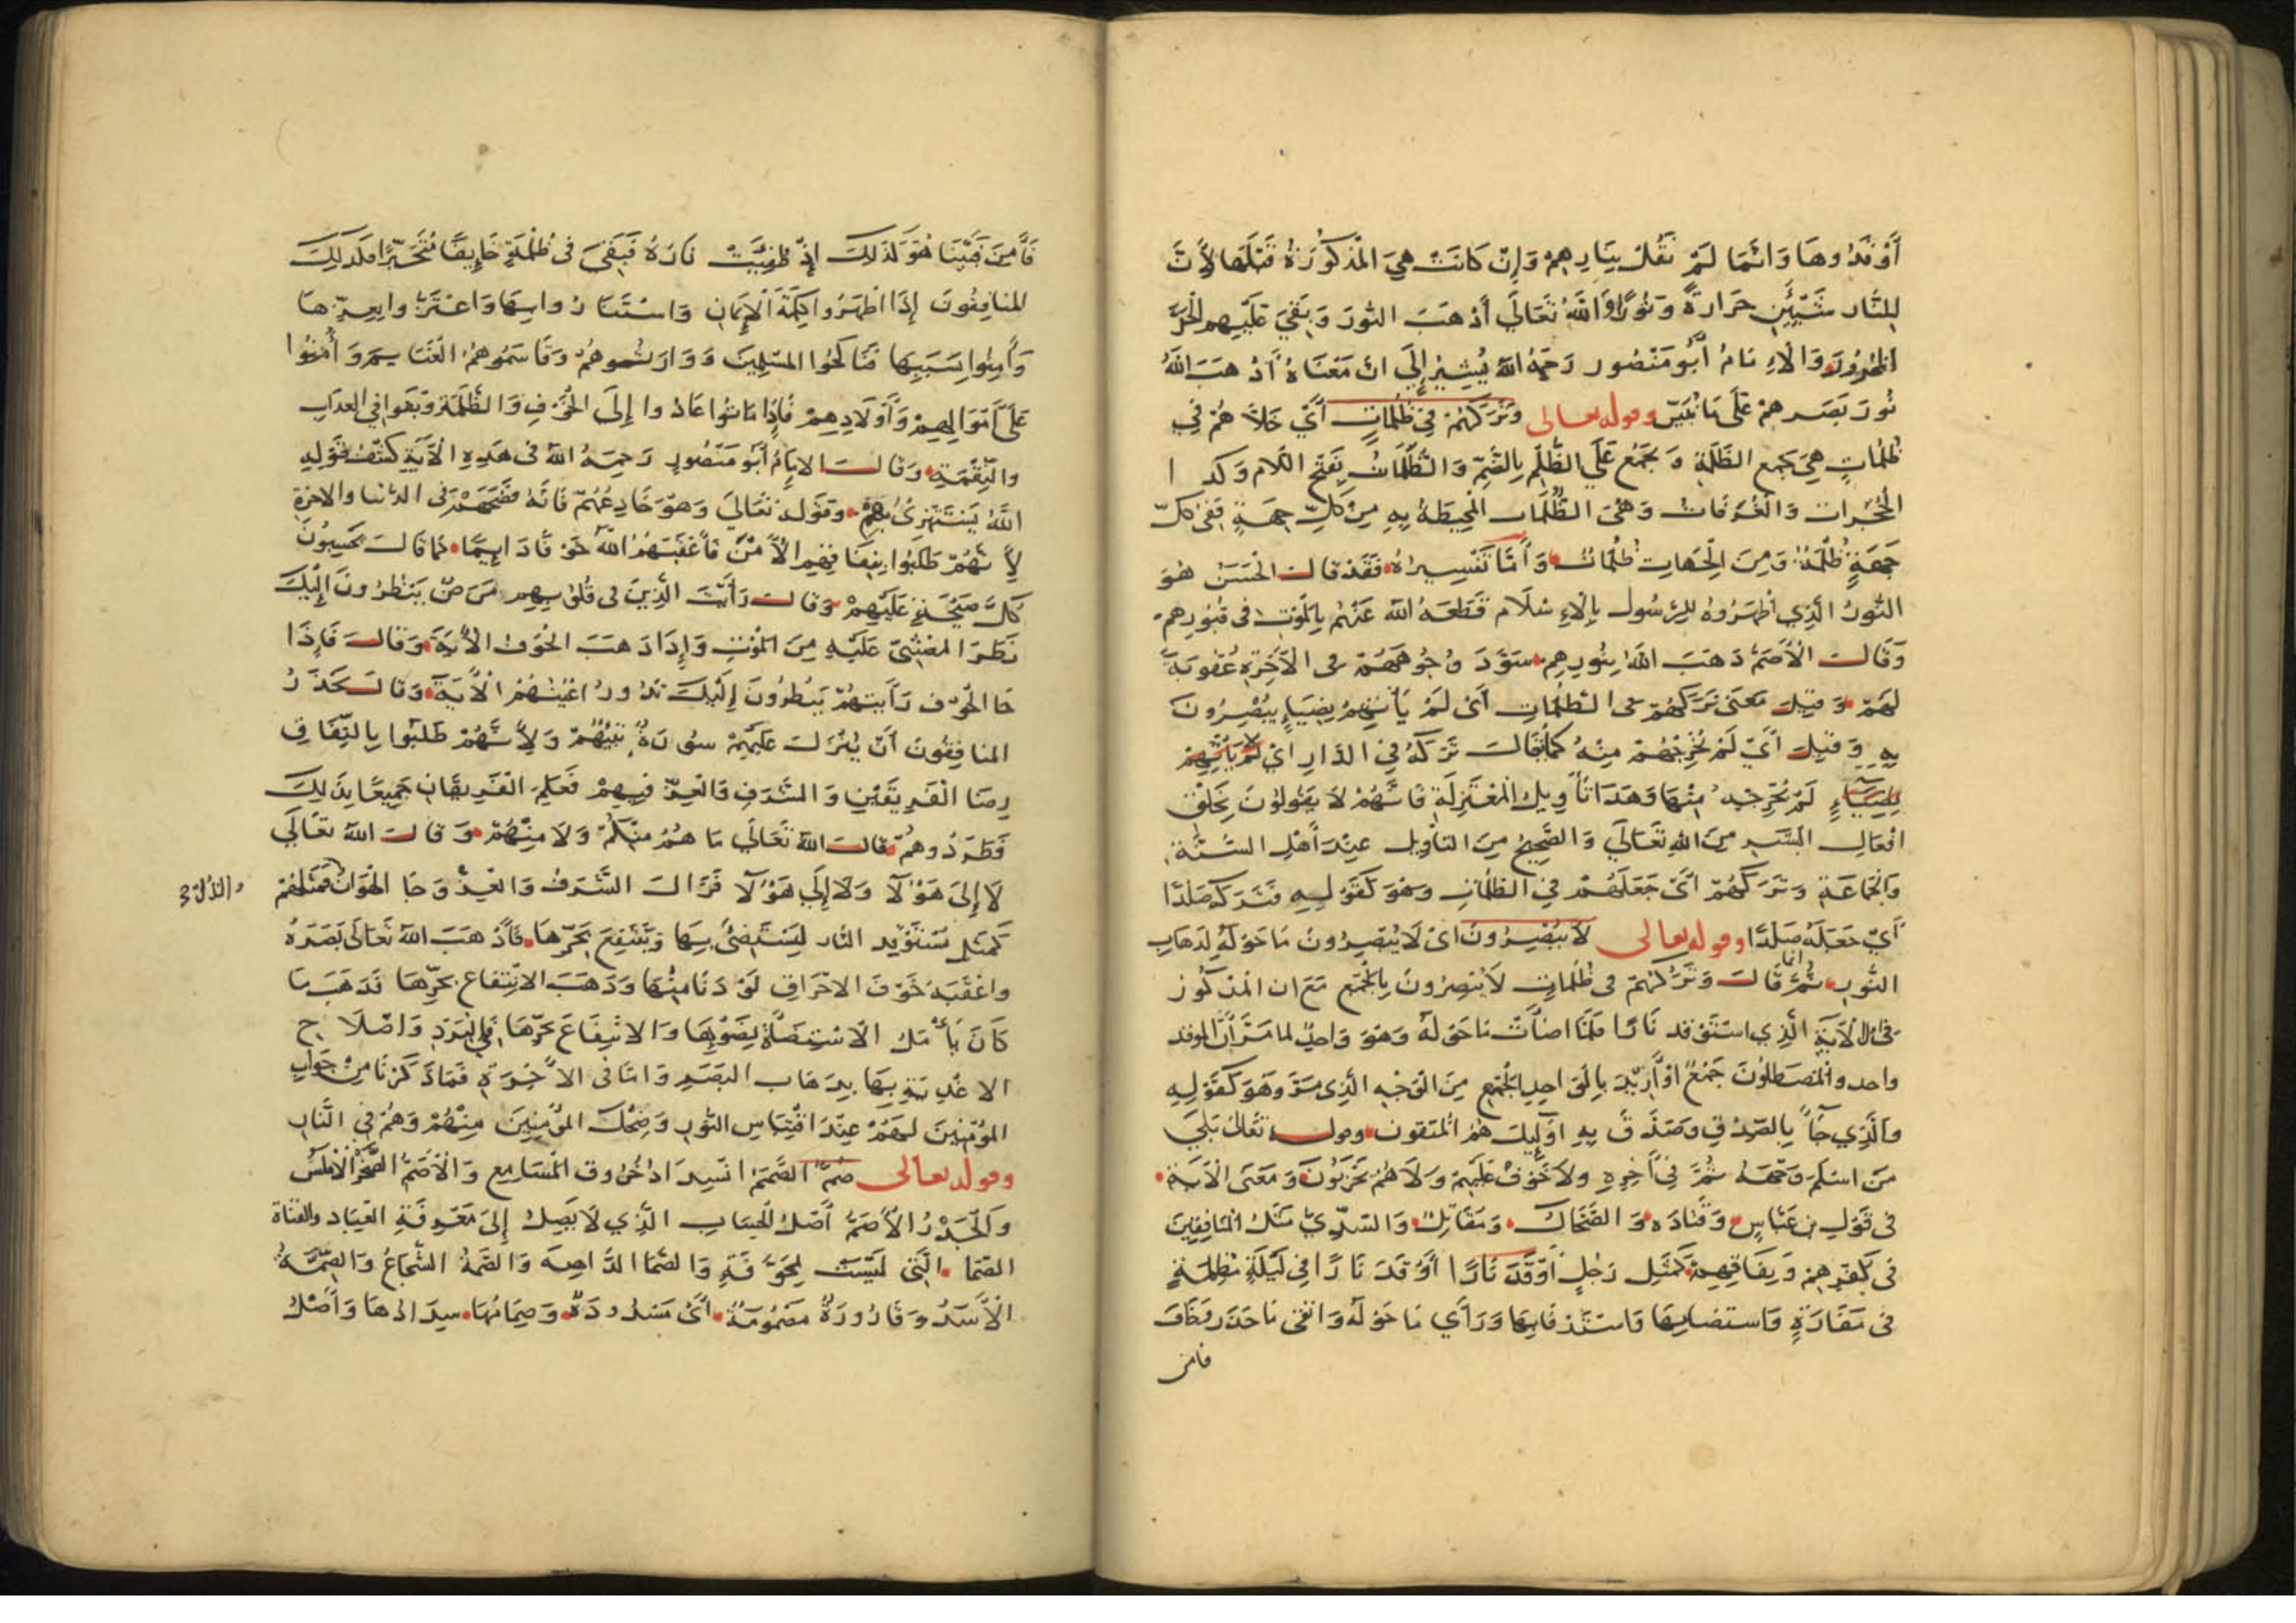 أَوْقَدُوهَا وَانَّمَا لَمْ نَقُلْ بِنَارِهِمْ وَإِنْ كَانَتْ هِيَ الْمَذْكُورَةُ قَبْلَهَا لِأَنَّ
لِلنَّارِ شَيْئَيْنِ حَرَارَةً وَنُورًا وَاللَّهُ تَعَالَى أَذْهَبَ النُّورَ وَبَقِيَ عَلَيْهِمُ الْحَرُّ
وَالْاِمَامُ أَبُو مَنْصُورٍ رَحِمَهُ اللهُ يُشِيرُ إِلَى انَّ مَعْنَاهُ أَذْهَبَ اللَّهُ
نُورَ بَصَرِهِمْ عَلَى مَا نُبَيِّنُ وقوله تعالى وَتَرَكَهُمْ فِي ظُلُمَاتٍ أَيْ خَلَّاهُمْ فِي
ظُلُمَاتٍ هِيَ جَمْعُ الظُّلْمَةِ وَيُجْمَعُ عَلَى الظُّلُمِ بِالضَّمِّ وَالظُّلَمَاتُ بِفَتْحِ اللَّامِ وَكَذَا
الْحُجُرَاتُ وَالْغُرُفَاتُ وَهِيَ الظُّلُمَاتُ الْمُحِيطَةُ بِهِ مِنْ كُلِّ جِهَةٍ فَفِي كُلِّ
جِهَةٍ ظُلْمَةٌ وَمِنَ الْجِهَاتِ ظُلُمَاتٌ وَأَمَّا تَفْسِيرُهُ فَقَدْ قَالَ الْحَسَنُ هُوَ
النُّورُ الَّذِي أَظْهَرُوهُ لِلرَّسُولِ بِالْاِسْلَامِ قَطَعَهُ اللهُ عَنْهُمْ بِالْمَوْتِ فِي قُبُورِهِمْ
وَقَالَ الْأَصَمُّ ذَهَبَ اللهُ بِنُورِهِمْ سَوَّدَ وُجُوهَهُمْ فِي الْآخِرَةِ عُقُوبَةً
لَهُمْ وَقِيلَ مَعْنَى تَرَكَهُمْ فِي الظُّلُمَاتِ أَيْ لَمْ يَأْتِهِمْ بِضِيَاءٍ يُبْصِرُونَ
بِهِ وَقِيلَ أَيْ لَمْ يُخْرِجْهُمْ مِنْهُ كَمَا يُقَالُ تَرَكَهُ فِي الدَّارِ ايْ لَمْ يَأْتِهِمْ
بِضِيَاءٍ لَمْ يُخْرِجْهُ مِنْهَا وَهَذَا تَأْوِيلُ الْمُعْتَزِلَةِ فَاِنَّهُمْ لَا يَقُولُونَ بِخَلْقِ
افْعَالِ الْبَشَرِ مِنَ اللهِ تَعَالَى وَالصَّحِيحُ مِنَ التَّأْوِيلِ عِنْدَ أَهْلِ السُّنَّةِ
وَالْجَمَاعَةِ وَتَرَكَهُمْ أَيْ جَعَلَهُمْ فِي الظُّلُمَاتِ وَهُوَ كَقَوْلِهِ فَتَرَكَهُ صَلْدًا
أَيْ جَعَلَهُ صَلْدًا وقوله تعالى لَا يُبْصِرُونَ ايْ لَا يُبْصِرُونَ مَا حَوْلَهُ لِذَهَابِ
النُّورِ ثُمَّ انما قَالَ وَتَرَكَهُمْ فِي ظُلُمَاتٍ لَا يُبْصِرُونَ بِالْجَمْعِ مَعَ ان الْمَذْكُورَ
الْآيَةِ الَّذِي اسْتَوْقَدَ نَارًا فَلَمَّا اضَأَتْ مَا حَوْلَهُ وَهُوَ وَاحِدٌ لِمَا مَرَّ أَنَّ الموقد
واحد وَالْمُصْطَلُونَ جَمْعٌ اوْ أُرِيدَ بِالْوَاحِدِ الْجَمْعِ مِنَ الْوَجْهِ الَّذِي مَرَّ وَهُوَ كَقَوْلِهِ
وَالَّذِي جَاءَ بِالصِّدْقِ وَصَدَّقَ بِهِ اُولَئِكَ هُمُ الْمُتَّقُونَ وقوله تَعَالَى بَلَى
مَنْ اسْلَمَ وَجْهَهُ ثُمَّ فِي آخِرِهِ وَلَا خَوْفٌ عَلَيْهِمْ وَلَا هُمْ يَحْزَنُونَ وَمَعْنَى الْآيَةِ
فِي قَوْلِ بْنِ عَبَّاسٍ وَقَتَادَه وَالضَّحَّاكِ وَمُقَاتِلٍ وَالسُّدِّيِّ مَثَلُ الْمُنَافِقِينَ
فِي كُفْرِهِمْ وَنِفَاقِهِمْ كَمَثَلِ رَجُلٍ أَوْقَدَ نَارًا أَوْقَدَ نَارًا فِي لَيْلَةٍ مُظْلِمَةٍ
فِي مَفَازَةٍ فَاسْتَضَا بِهَا وَاسْتَدْفَا بِهَا وَرَأَى مَا حَوْلَهُ وَاتَّقَى مَا حَذِرَ وَخَافَ
فامن
فَأَمِنَ فَبَيْنَا هُوَ كَذَلِكَ إِذْ طُفِيَتْ نَارُهُ فَبَقِيَ فِي ظُلْمَةٍ خَائِفًا مُتَحَيِّرًا فكَذَلِكَ
المُنَافِقُونَ إِذَا اظْهَرُوا كَلِمَةَ الْاِيمَانِ وَاسْتَنَارُوا بِهَا وَاعْتَزُّوا بِعِزِّهَا
وَأَمِنُوا بِسَبَبِهَا فَنَاكَحُوا الْمُسْلِمِينَ وَوَارَثُوهُمْ وَقَاسَمُوهُمُ الْغَنَايِمَ وَأَمِنُوا
عَلَى أَمْوَالِهِمْ وَأَوْلَادِهِمْ فَإِذَا مَاتُوا عَادُوا إِلَى الْخَوْفِ وَالظُّلْمَةِ وَبَقَوا فِي الْعَذَابِ
وَالنِّقْمَةِ وَقَالَ الاِمَامُ أَبُو مَنْصُورٍ رَحِمَهُ اللهُ فِي هَذِهِ الْآيَةِ كَقَوْلِهِ
اللَّهُ يَسْتَهْزِئُ بِهِمْ وَقَوْلِهِ تَعَالَى وَهُوَ خَادِعُهُمْ فَانَّهُ فَضَحَهُمْ فِي الدُّنْيَا وَالاخِرَةِ
لِأَنَّهُمْ طَلَبُوا بِنِفَاقِهِمِ الْأَمْنَ فَأَعْقَبَهُمُ اللَّهُ خَوْفًا دَايِمًا كَمَا قَالَ يَحْسِبُونَ
كُلَّ صَيْحَةٍ عَلَيْهِمْ وَقَالَ رَأَيْتَ الَّذِينَ فِي قُلُوبِهِمْ مَرَضٌ يَنْظُرُونَ إِلَيْكَ
نَظَرَ الْمَغْشِيِّ عَلَيْهِ مِنَ الْمَوْتِ وَإِذَا ذَهَبَ الْخَوْفُ الْآيَةَ وَقَالَ فَإِذَا
جَا الْخَوْفُ رَأَيْتَهُمْ يَنْظُرُونَ إِلَيْكَ تَدُورُ اعْيُنُهُمْ الْآيَةَ وَقَالَ يَحْذَرُ
المُنَافِقُونَ أَنْ يُنْزَلَ عَلَيْهِمْ سُورَةٌ تُنَبِّئُهُمْ وَلِأَنَّهُمْ طَلَبُوا بِالنِّفَاقِ
رِضَا الْفَرِيقَيْنِ وَالشَّرَفَ وَالْعِزَّ فِيهِمْ فَعَلِمَ الْفَرِيقَانِ جَمِيعًا بِذَلِكَ
فَطَرَدُوهُمْ قَالَ اللهُ تَعَالَى مَا هُمْ مِنْكُمْ وَلَا مِنْهُمْ وَقَالَ اللهُ تَعَالَى
لَا إِلَى هَؤُلَا وَلَا إِلَى هَؤُلَا فَزَالَ الشَّرَفُ وَالْعِزُّ وَجَا الْهَوَانُ فَمَثَلُهُمْ
والذل
كَمَثَلِ مُسْتَوْقِدِ النَّارِ لِيَسْتَضِيءَ بِهَا وَيَنْتَفِعَ بِحَرِّهَا فَأَذْهَبَ اللهُ تَعَالَى بَصَرَهُ
وَاعْقَبَهُ خَوْفَ الاحْرَاقِ لَوْ دَنَا مِنْهَا وَذَهَبَ الانْتِفَاعُ بِحَرِّهَا فَذَهَبَ مَا
كَانَ يَأْمُلُ الْاسْتِضَاءَةَ بِضَوْئِهَا وَالانْتِفَاعَ بِحَرِّهَا فِي الْبَرَدِ وَاصْلَاحِ
الاغْذِيَةِ بِهَا بِذَهَابِ الْبَصَرِ وَامَّا فِي الْآخِرَةِ فَمَا ذَكَرْنَا مِنْ جَوَابِ
الْمُؤْمِنِينَ لَهُمْ عِنْدَ اقْتِبَاسِ النُّورِ وَضَحِكَ الْمُؤْمِنِينَ مِنْهُمْ وَهُمْ فِي النَّارِ
وقوله تعالى صُمٌّ الصَّمَمُ انْسِدَادُ خُرُوقِ الْمَسَامِعِ وَالْأَصَمُّ الصَّخْرُ الْامْلَسُ
وَالْجَذْرُ الْأَصَمُّ أَصْلُ الْحِسَابِ الَّذِي لَا يَصِلُ إِلَى مَعْرِفَتِهِ الْعِبَادُ والقناة
الصَّمَّا الَّتِي لَيْسَتْ بِمُجَوَّفَةٍ وَالصَّمَّا الدَّاهِيَه وَالصِّمَّةُ الشُّجَاعُ وَالصِّمَّةُ
الْأَسَدُ وَقَارُورَةٌ مَصْمُومَةٌ أَيْ مَسْدُودَةٌ وَصِمَامُهَا سِدَادُهَا وَأَصْلُ